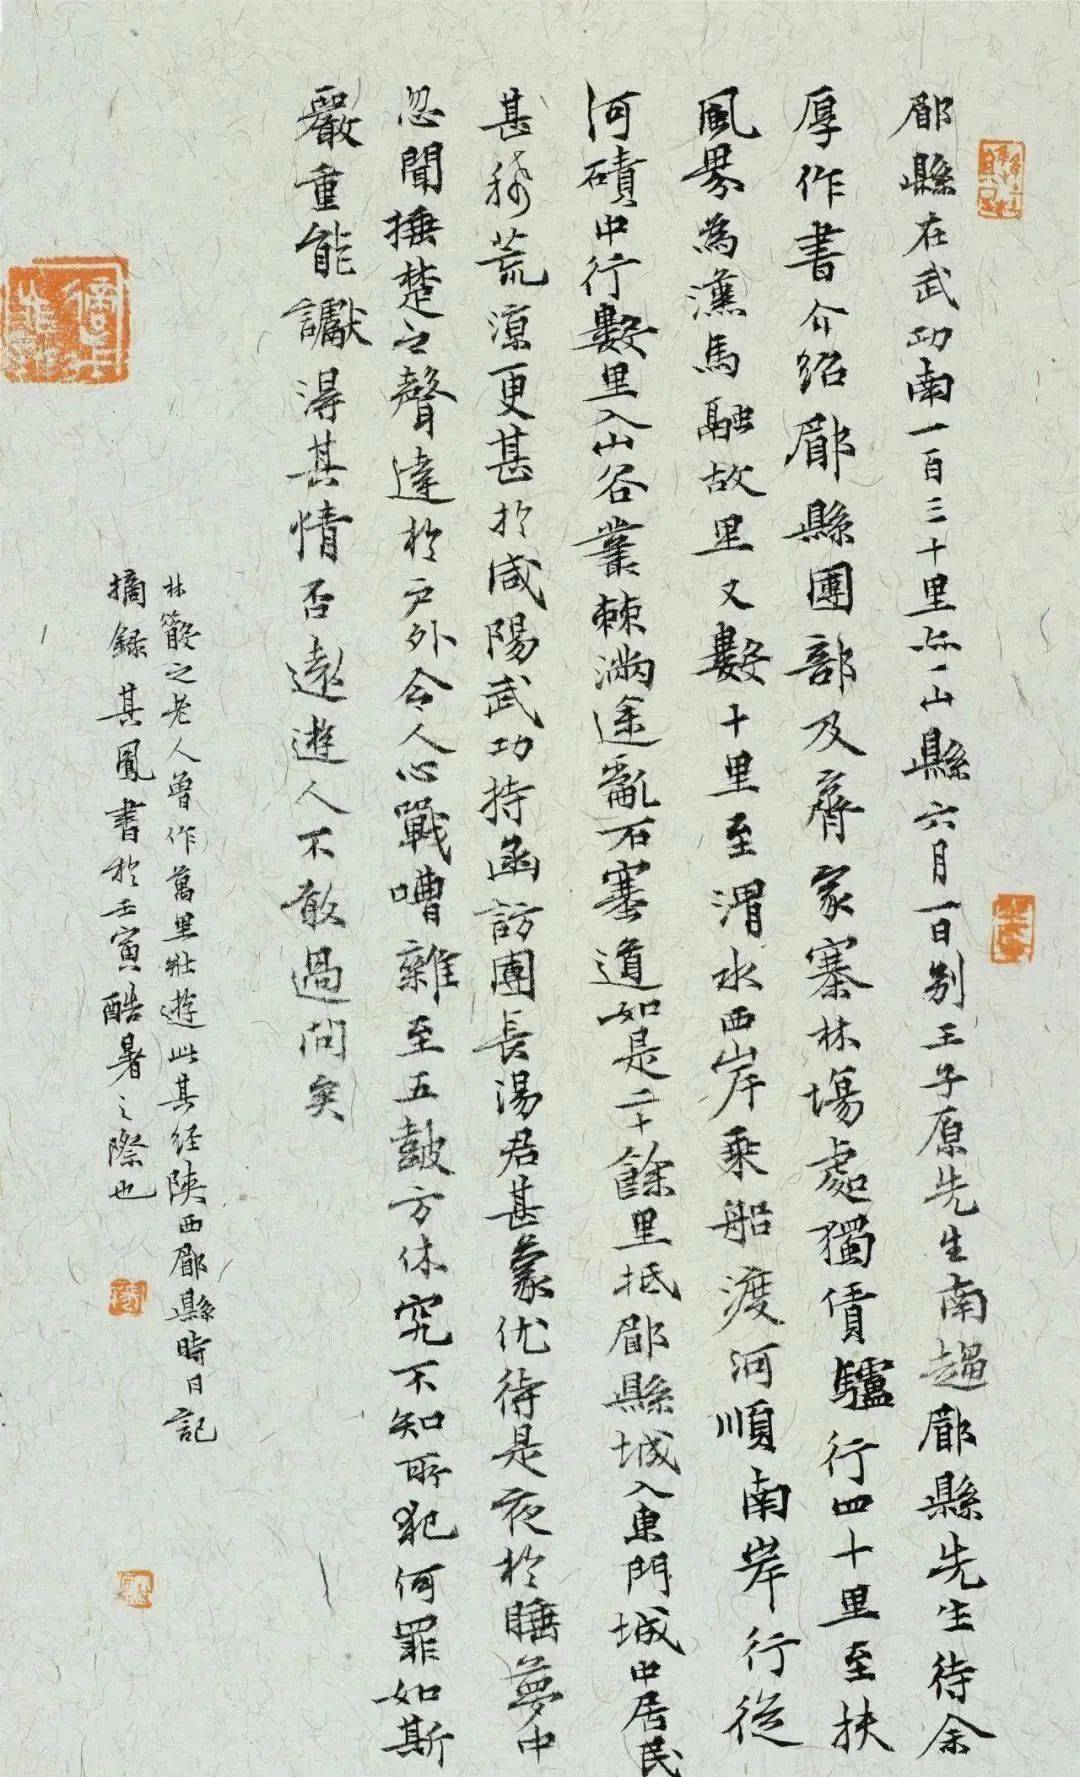 郿縣在武功南一百三十里亦一山縣六月一日别王子原先生南趨郿縣先生待余
厚作書介紹郿縣團部及齊家寨林塲處獨賃驢行四十里至扶
風界為漢馬融故里又數十里至渭水西岸乘船渡河順南岸行從
河磧中行數里入山谷叢棘滿途亂石塞道如是二十餘里抵郿縣城入東門城中居民
甚稀荒涼更甚於咸陽武功持函訪團長湯君甚蒙优待是夜於睡夢中
忽聞捶楚之聲達於户外令人心戰嘈雜至五鼓方休究不知所犯何罪如斯
嚴重能讞得其情否遠遊人不敢過问矣
林散之老人曾作萬里壯遊此其经陕西郿縣時日記
摘録其鳳書於壬寅酷暑之際也